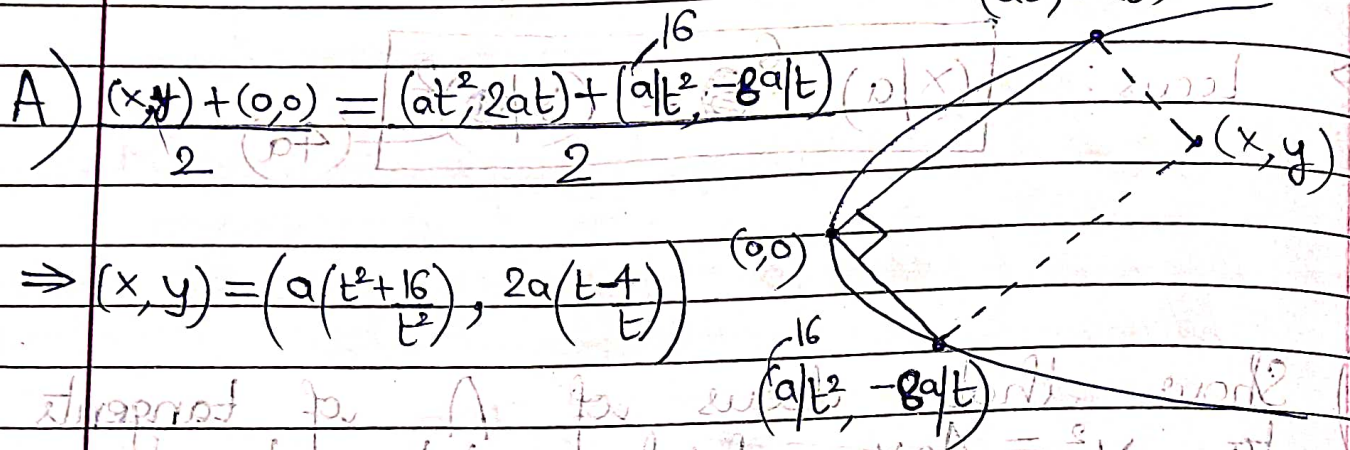 A) (x,y) + (0,0) / 2 = (at², 2at) + (16a/t², -8a/t) / 2
(x, y)
(0,0)
⇒ (x, y) = (a(t² + 16/t²), 2a(t - 4/t))
(16a/t², -8a/t)